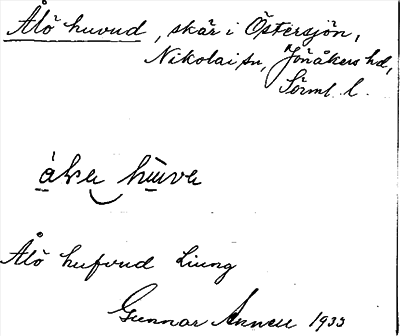 Ålö huvud, skär i Östersjön,
Nikolai sn, Jönåkers hd,
Sörml. l.
Ålö hufvud Liung
Gunnar Annell 1933